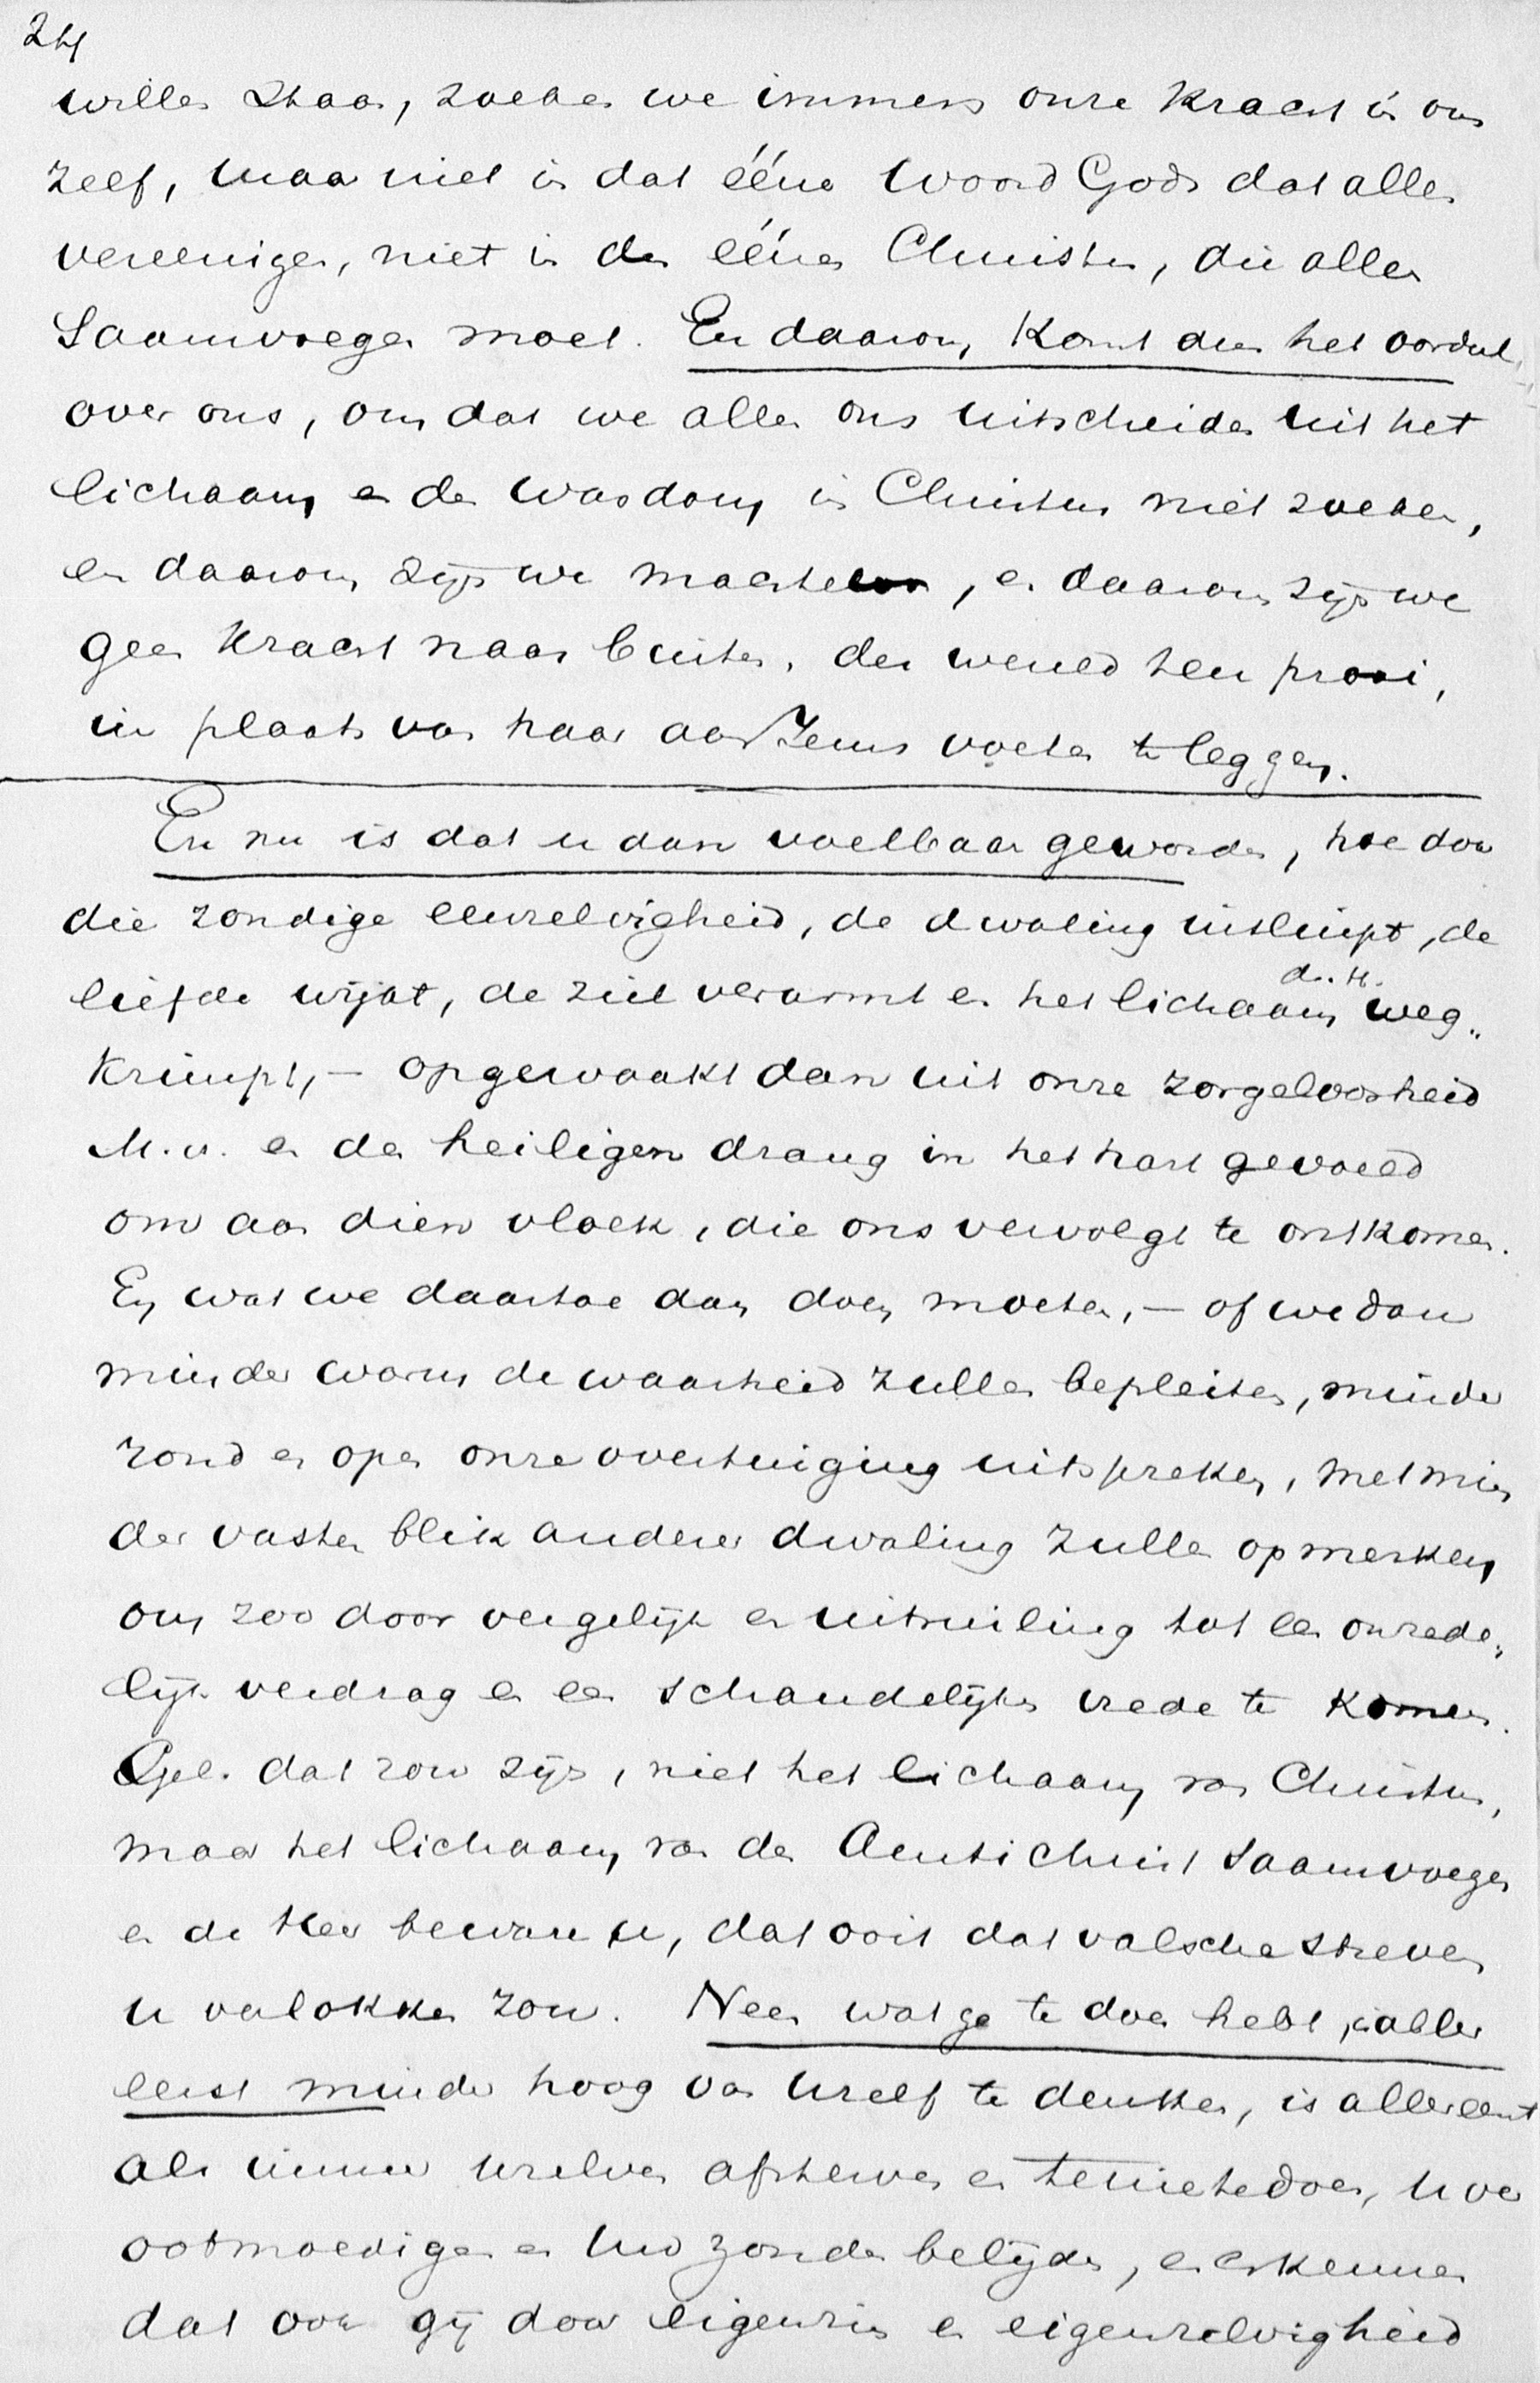 24
willen staan, zoeken we immers onze kracht in ons
zelf, maar niet in dat ééne Woord Gods dat allen
vereenigen, niet in den éénen Christus, die allen
Saamvoegen moet. En daarom, komt dan het oordeel
over ons, omdat we allen ons uitscheiden uit het
lichaam en den wasdom in Christus niet zoeken,
en daarom zijn we machteloos, en daarom zijn we
geen kracht naar buiten, der wereld ten prooi,
in plaats van haar aan Jezus voeten te leggen.
En nu is dat u dan voelbaar geworden, hoe door
die zondige eenzelvigheid, de dwaling insluipt, de
liefde wijkt, de ziel verarmt en het lichaam d. H. weg„
krimpt, – opgewaakt dan uit onze zorgeloosheid
M.v. en den heiligen drang in het hart gevoed
om aan dien vloek, die ons vervolgt te ontkomen.
En wat we daartoe dan doen moeten, – of we dan
minder warm de waarheid zullen bepleiten, minder
rond en open onze overtuiging uitspreken, met min
der vasten blik anderer dwaling zullen opmerken
om zoo door vergelijk en uitruiling tot een onrede„
lijk verdrag en een schandelijken vrede te komen.
Gel. dat zou zijn, niet het lichaam van Christus,
maar het lichaam van den Antichrist saamvoegen
en de Heer beware u, dat ooit dat valsche streven
u verlokken zou. Neen wat ge te doen hebt, is aller
eerst minder hoog van Uzelf te denken, is allereerst
als immer Uzelven afsterven en tenietedoen, U ver
ootmoedigen en Uw zonden belijden, en erkennen
dat ook gij door eigenzin en eigenzelvigheid